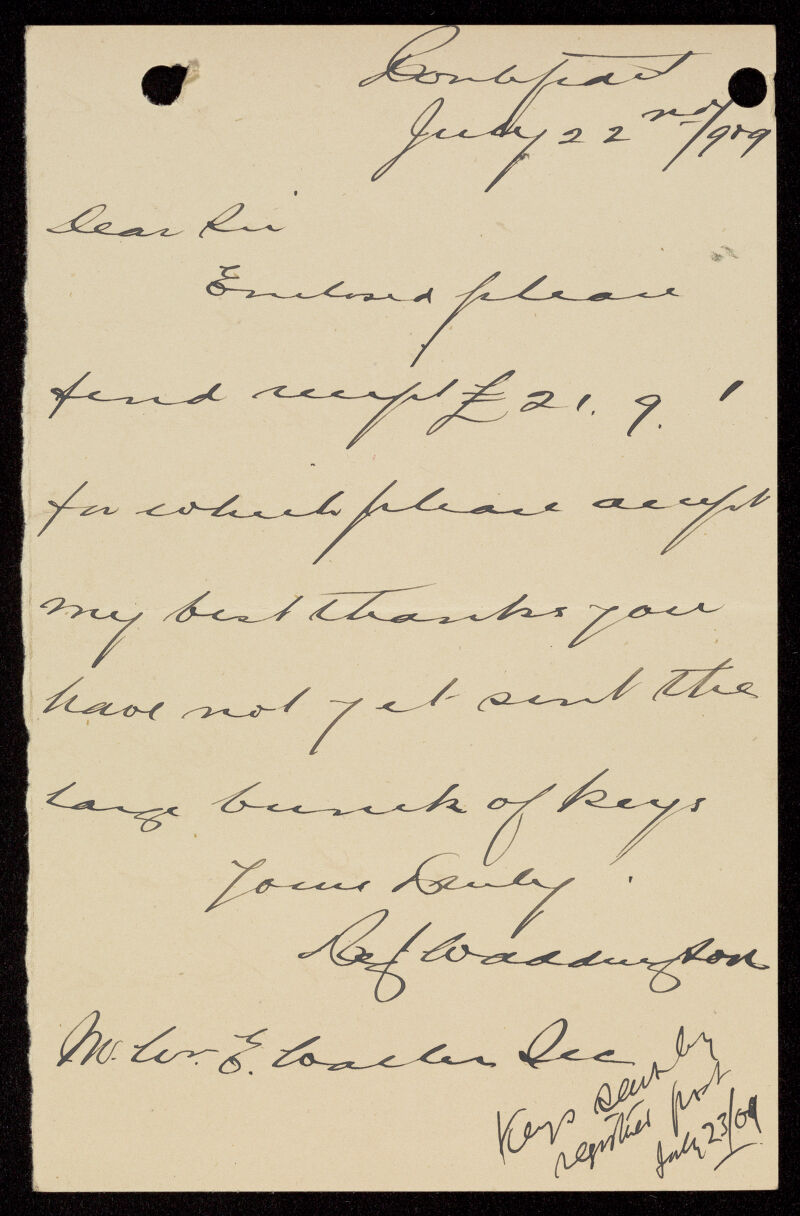 July 22nd/909
Dear Sir
Enclosed please
find receipt £21. 9. 1
for which please accept
my best thanks you
have not yet sent the
large bunch of keys
Yours Truly
Waddington
Mr. W. E. Waller Sec
Keys sent by
registered post
July 23/09